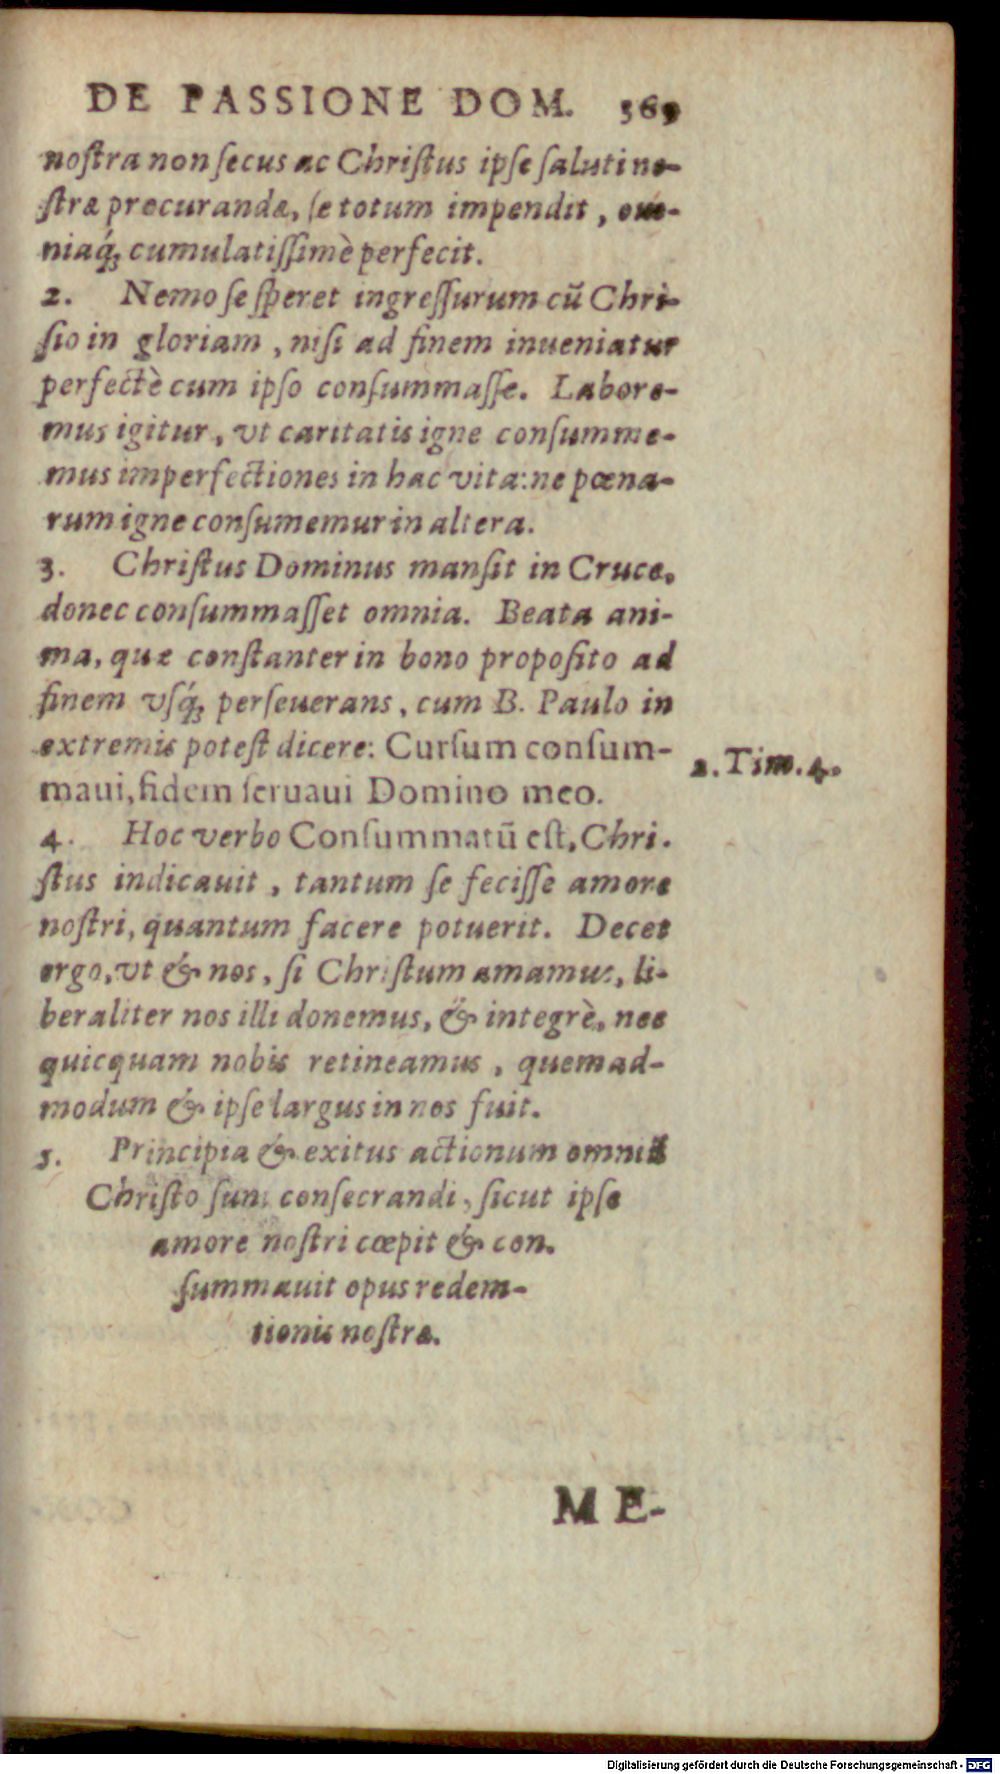 DE PASSIONE DOM. 369
nostra non secus ac Christus ipse saluti no-
stræ procurandæ, se totum impendit, om-
niaq́; cumulatissimè perfecit.
2. Nemo se speret ingressurum cũ Chri-
sto in gloriam, nisi ad finem inueniatur
perfectè cum ipso consummasse. Labore-
mus igitur, vt caritatis igne consumme-
mus imperfectiones in hac vita: ne pœna-
rum igne consumemur in altera.
3. Christus Dominus mansit in Cruce,
donec consummasset omnia. Beata ani-
ma, quæ constanter in bono proposito ad
finem vsq́; perseuerans, cum B. Paulo in
extremis potest dicere: Cursum consum-
maui, fidem seruaui Domino meo.
2. Tim. 4.
4. Hoc verbo Consummatũ est, Chri-
stus indicauit, tantum se fecisse amore
nostri, quantum facere potuerit. Decet
ergo, vt & nos, si Christum amamus, li-
beraliter nos illi donemus, & integrè, nec
quicquam nobis retineamus, quemad-
modum & ipse largus in nos fuit.
5. Principia & exitus actionum omniũ
Christo sunt consecrandi, sicut ipse
amore nostri cœpit & con-
summauit opus redem-
tionis nostræ.
ME-
Digitalisierung gefördert durch die Deutsche Forschungsgemeinschaft - DFG